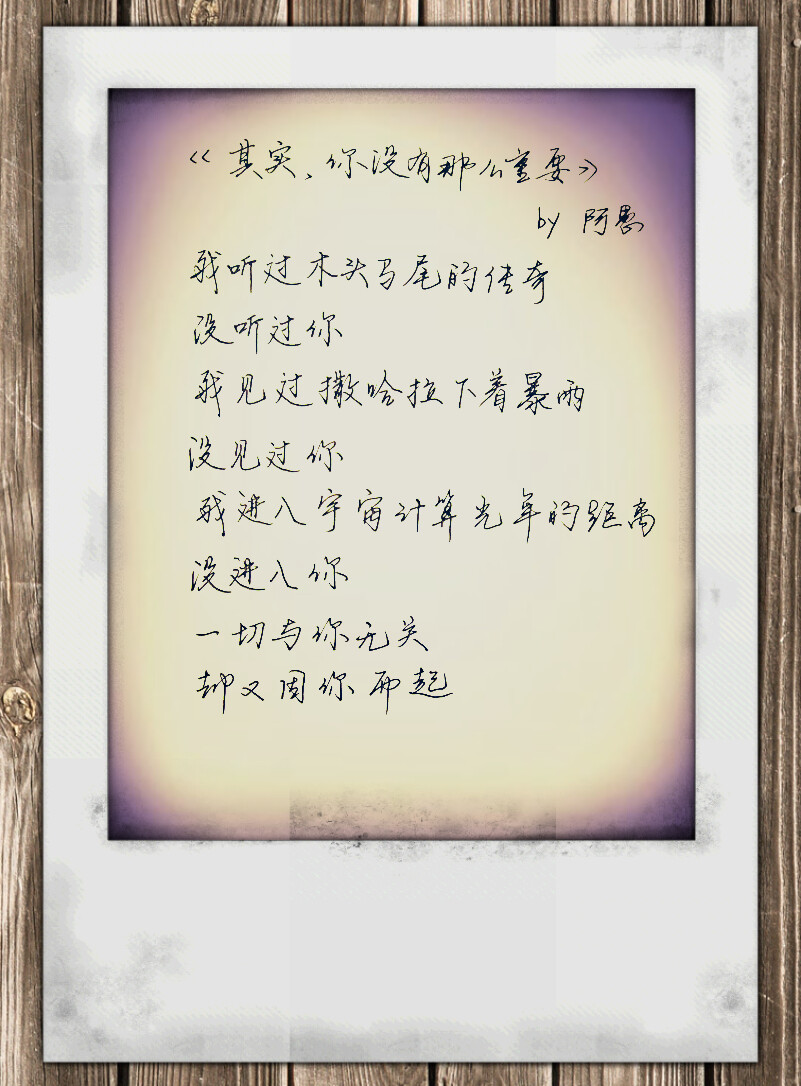 《其实、你没有那么重要》
by 阿愚
我听过木头马尾的传奇
没听过你
我见过撒哈拉下着暴雨
没见过你
我进入宇宙计算光年的距离
没进入你
一切与你无关
却又因你而起